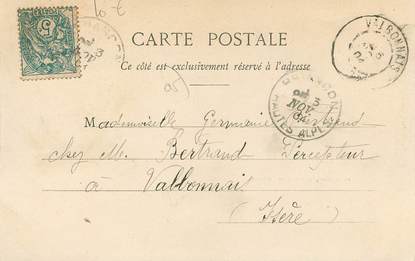 10 €
5
VALBONNAIS
CARTE POSTALE
Ce côté est exclusivement réservé à l'adresse
BRIANÇON
3
NOV
04
HAUTES ALPES
Mademoiselle Germaine Bertrand
chez M. Bertrand Percepteur
à Valbonnais
(Isère)